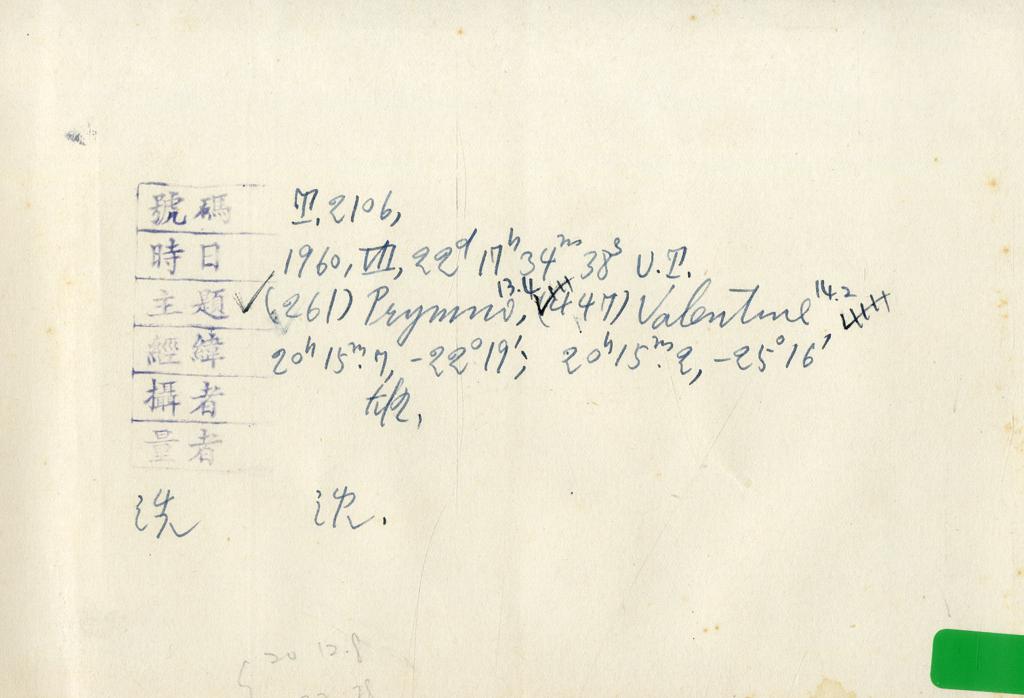 號碼 T. 2106,
時日 1960, VII, 22ᵈ 17ʰ 34ᵐ 38ˢ U.T.
主題 (261) Prymno, 13.4 (447) Valentine 14.2
經緯 20ʰ 15ᵐ.7, -22°19'; 20ʰ15ᵐ.2, -25°16'
攝者
量者
洗 沈.
20 12.8